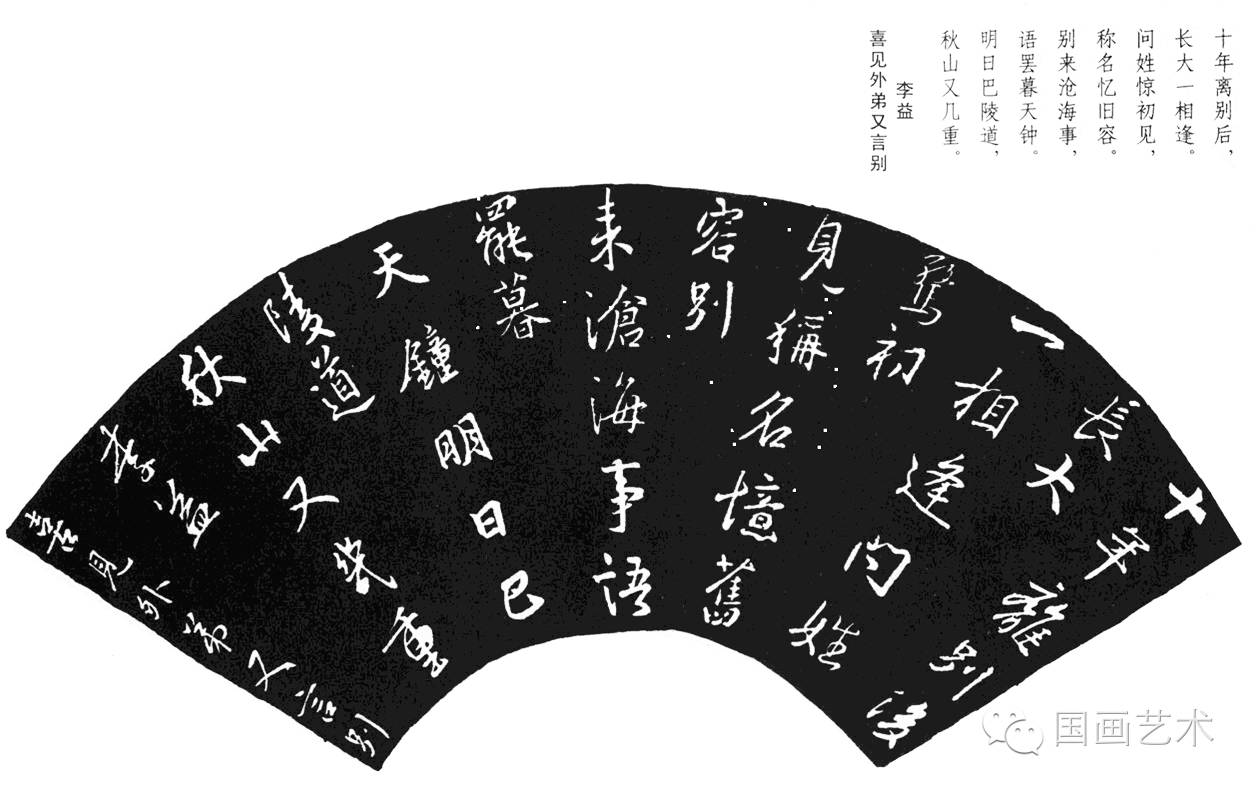 十年离别后，
长大一相逢。
问姓惊初见，
称名忆旧容。
别来沧海事，
语罢暮天钟。
明日巴陵道，
秋山又几重。
李益
喜见外弟又言别
十年離别後
長大
一相逢问姓
驚初
見稱名憶舊
容别
来滄海事語
罷暮
天鐘明日巴
陵道
秋山又幾重
李益
喜見外弟又言别
国画艺术